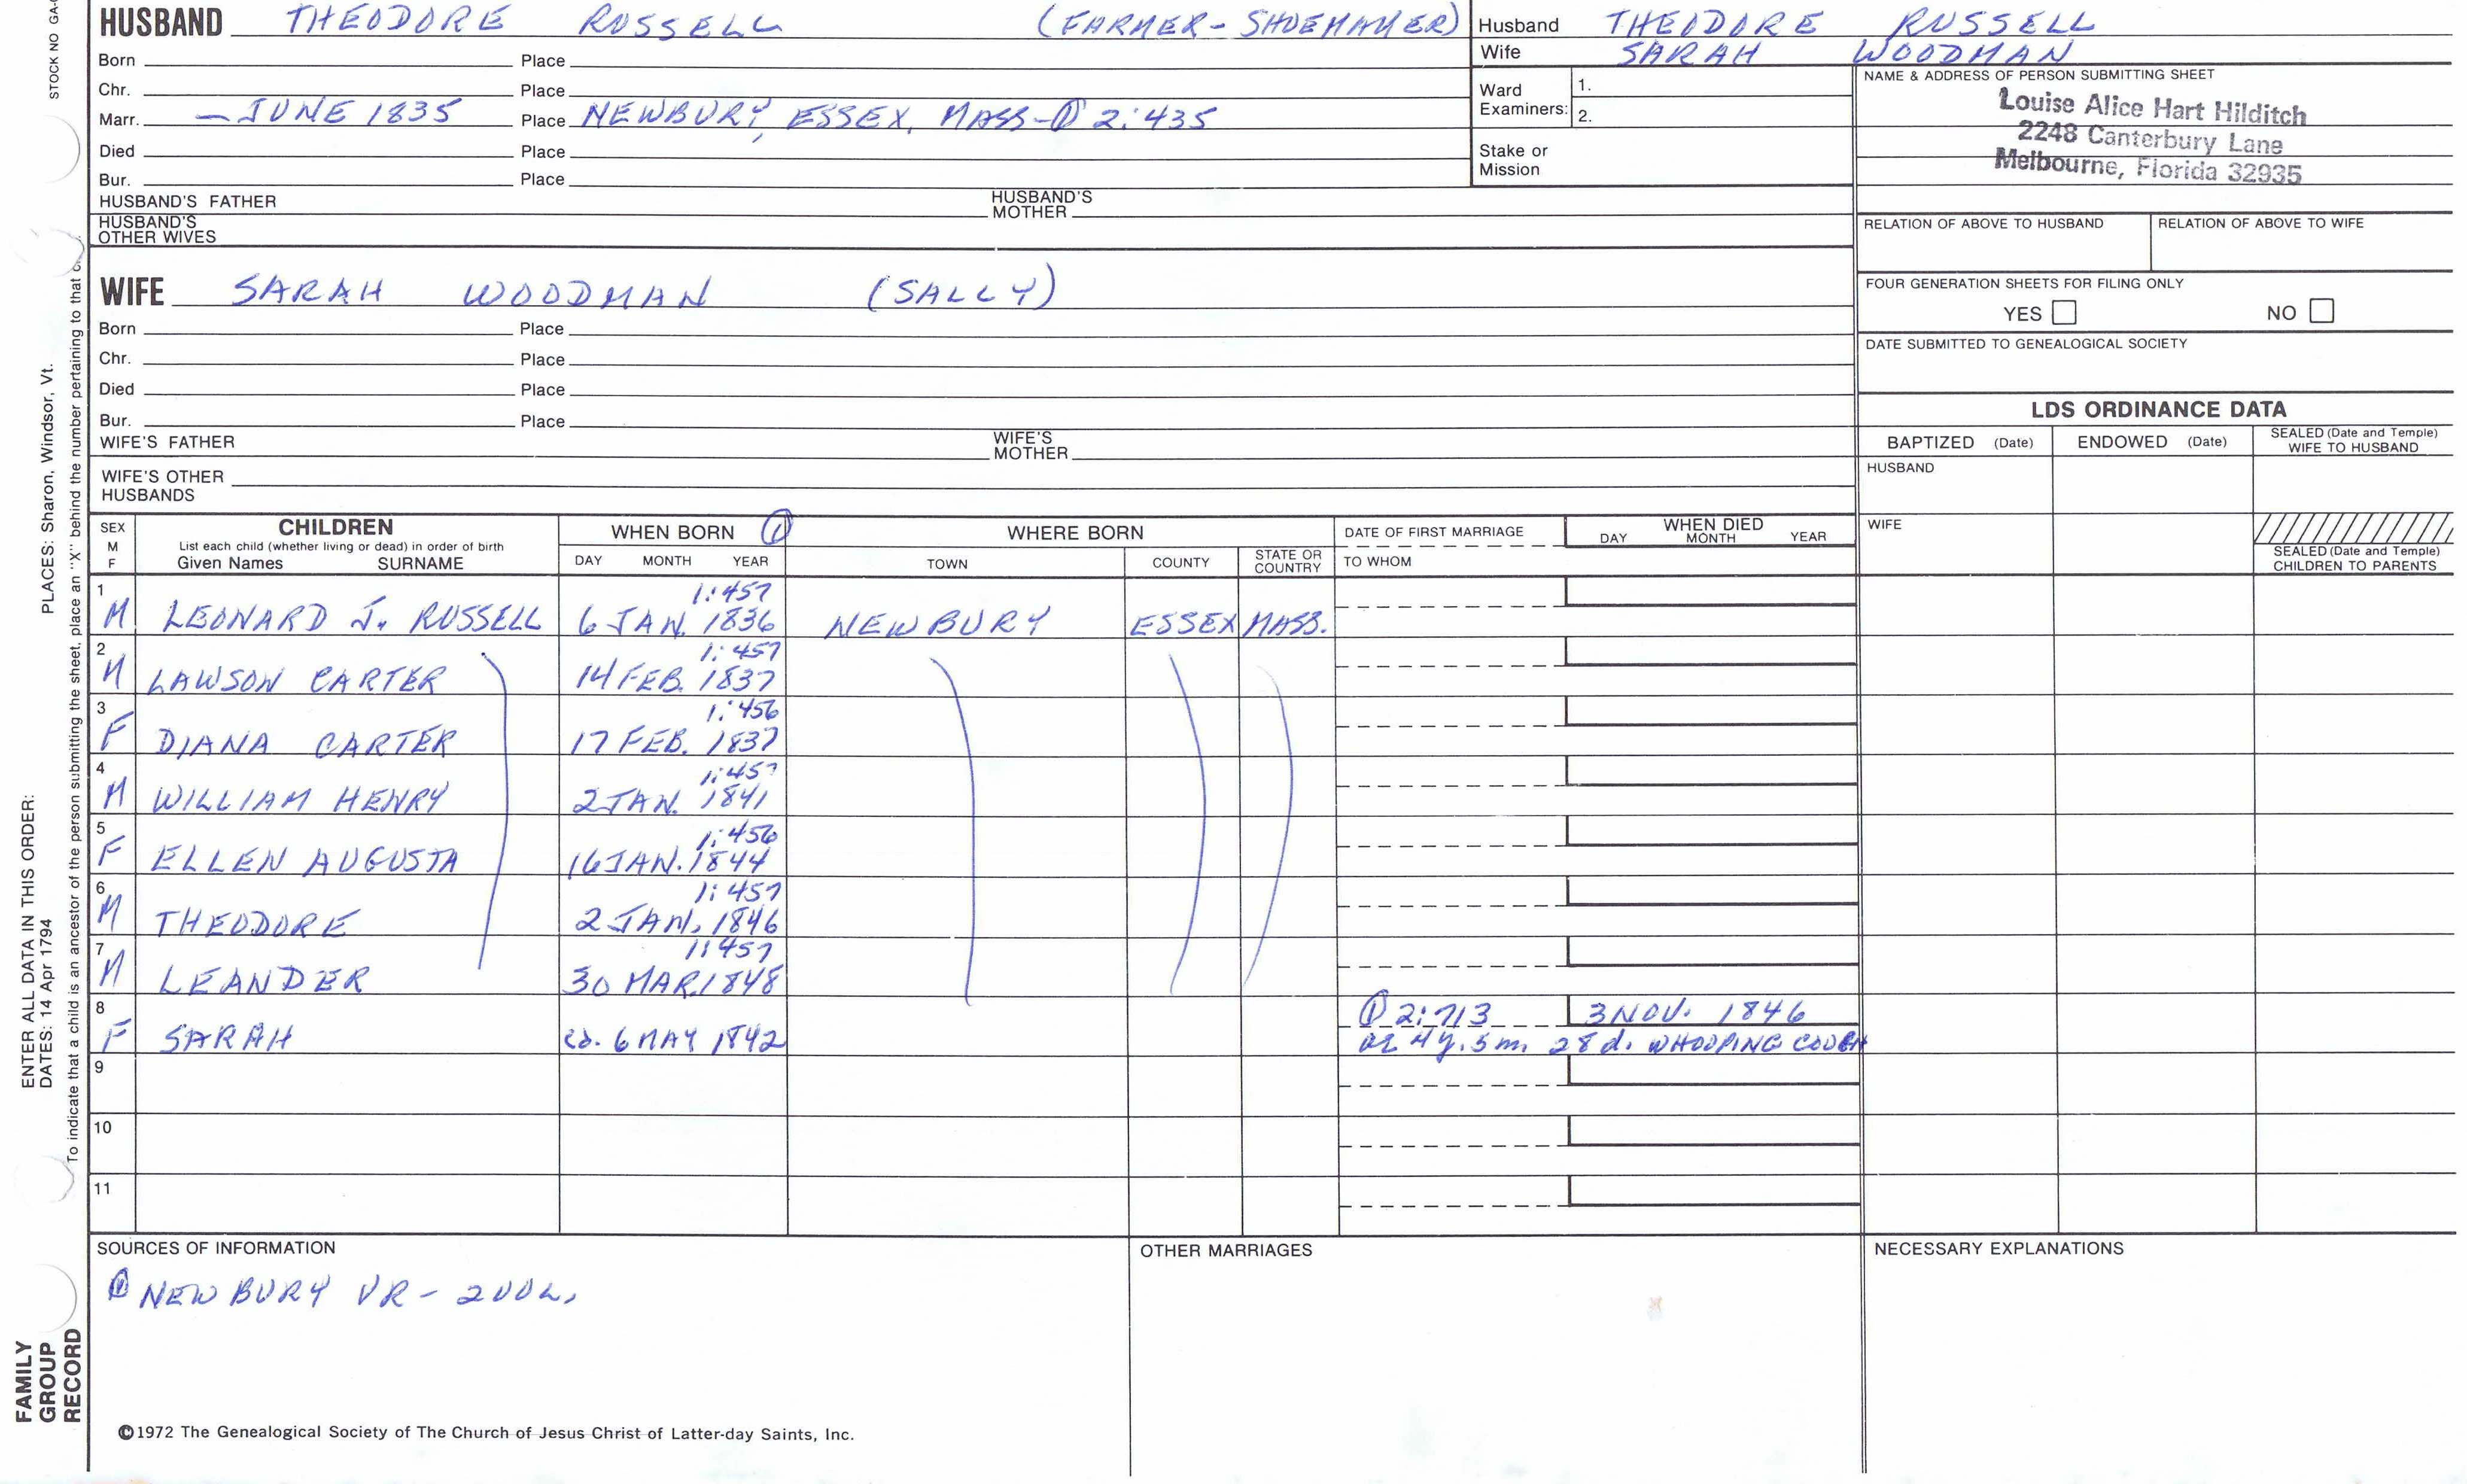 STOCK NO GA-
HUSBAND THEODORE RUSSELL (FARMER-SHOEMAKER)
Born Place
Chr. Place
Marr. - JUNE 1835 Place NEWBURY, ESSEX, MASS-① 2:435
Died Place
Bur. Place
HUSBAND'S FATHER HUSBAND'S MOTHER
HUSBAND'S OTHER WIVES
Husband THEODORE RUSSELL
Wife SARAH WOODMAN
Ward Examiners: 1.
2.
Stake or Mission
NAME & ADDRESS OF PERSON SUBMITTING SHEET
Louise Alice Hart Hilditch
2248 Canterbury Lane
Melbourne, Florida 32935
RELATION OF ABOVE TO HUSBAND RELATION OF ABOVE TO WIFE
FOUR GENERATION SHEETS FOR FILING ONLY
YES NO
DATE SUBMITTED TO GENEALOGICAL SOCIETY
WIFE SARAH WOODMAN (SALLY)
Born Place
Chr. Place
Died Place
Bur. Place
WIFE'S FATHER WIFE'S MOTHER
WIFE'S OTHER HUSBANDS
LDS ORDINANCE DATA
BAPTIZED (Date) ENDOWED (Date) SEALED (Date and Temple) WIFE TO HUSBAND
HUSBAND
WIFE
SEALED (Date and Temple) CHILDREN TO PARENTS
SEX M F
CHILDREN
List each child (whether living or dead) in order of birth
Given Names SURNAME
WHEN BORN ①
DAY MONTH YEAR
WHERE BORN
TOWN COUNTY STATE OR COUNTRY
DATE OF FIRST MARRIAGE
TO WHOM
WHEN DIED
DAY MONTH YEAR
1 1:457
M LEONARD J. RUSSELL 6 JAN. 1836 NEWBURY ESSEX MASS.
2 1:457
M LAWSON CARTER 14 FEB. 1837
3 1:456
F DIANA CARTER 17 FEB. 1837
4 1:457
M WILLIAM HENRY 2 JAN. 1841
5 1:456
F ELLEN AUGUSTA 16 JAN. 1844
6 1:457
M THEODORE 2 JAN. 1846
7 1:457
M LEANDER 30 MAR. 1848
8 ① 2:713 3 NOV. 1846
F SARAH ca. 6 MAY 1842 4y. 5m. 28d. WHOOPING COUGH
9
10
11
SOURCES OF INFORMATION
① NEWBURY VR - 2VOL.
OTHER MARRIAGES
NECESSARY EXPLANATIONS
©1972 The Genealogical Society of The Church of Jesus Christ of Latter-day Saints, Inc.
PLACES: Sharon, Windsor, Vt.
ENTER ALL DATA IN THIS ORDER:
DATES: 14 Apr 1794
To indicate that a child is an ancestor of the person submitting the sheet, place an "X" behind the number pertaining to that c
FAMILY
GROUP
RECORD